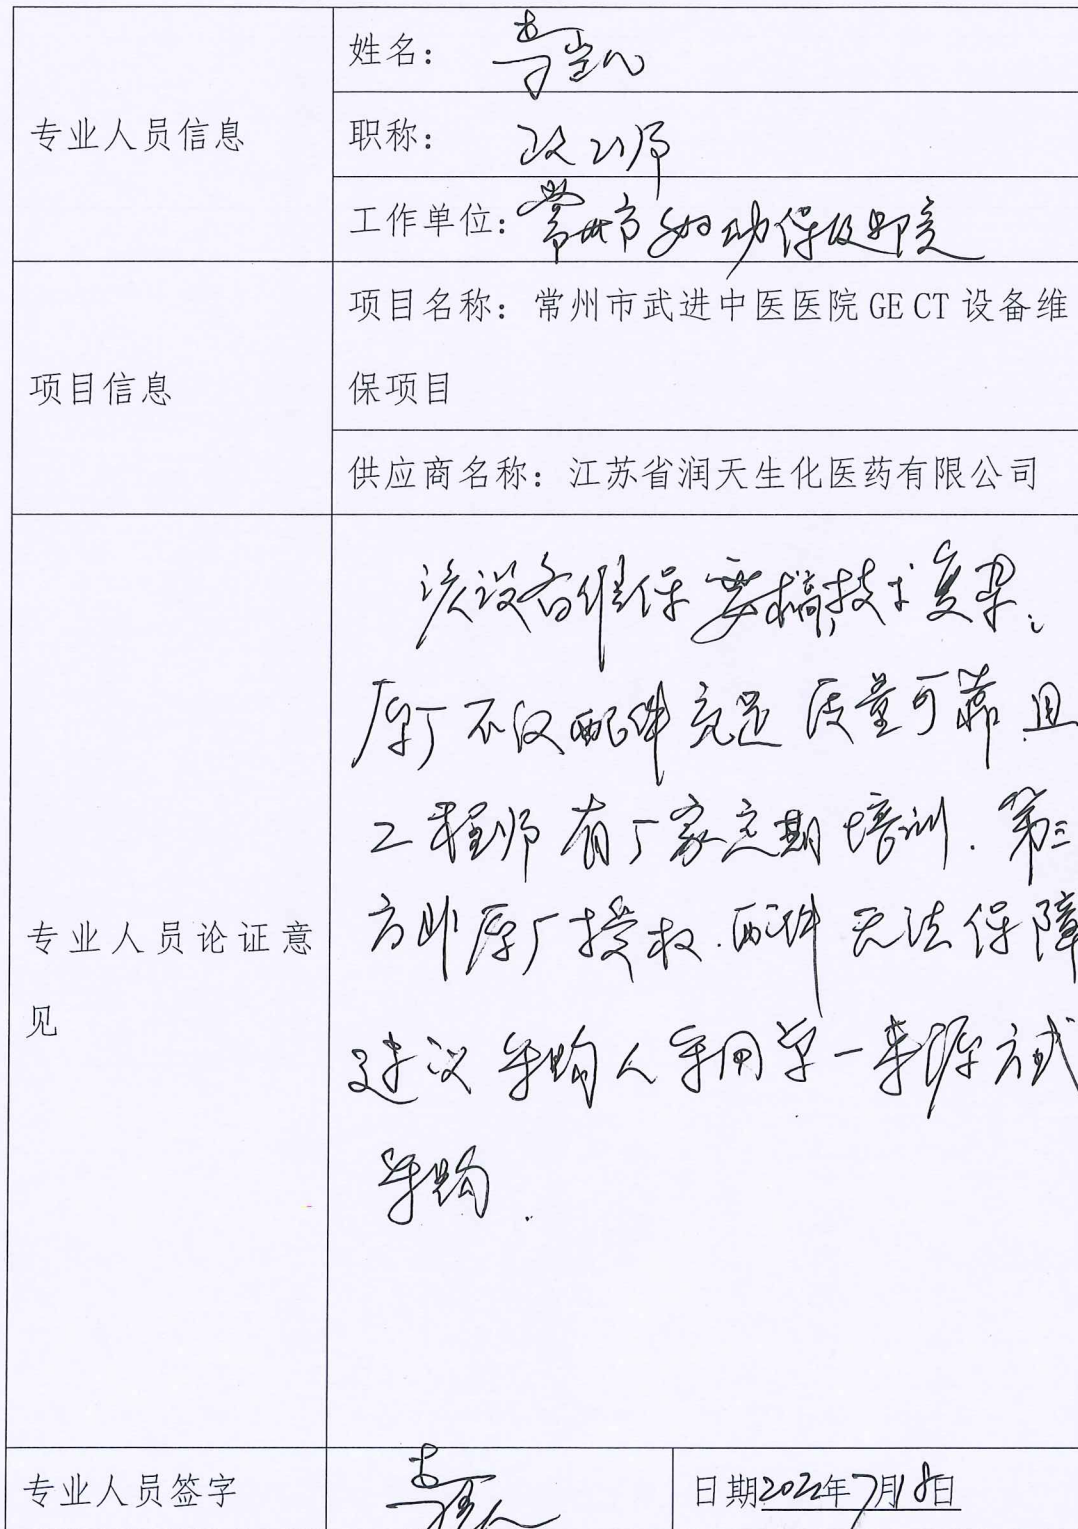 专业人员信息
姓名：
职称： 政工师
工作单位：常州市妇幼保健院
项目信息
项目名称：常州市武进中医医院 GE CT 设备维
保项目
供应商名称：江苏省润天生化医药有限公司
专业人员论证意
见
该设备维保要求高，技术复杂。
原厂不仅配件充足 质量可靠 且
工程师有厂家定期培训．第三
方非原厂授权．配件无法保障
建议采购人采用单一来源方式
采购．
专业人员签字
日期2022年7月18日